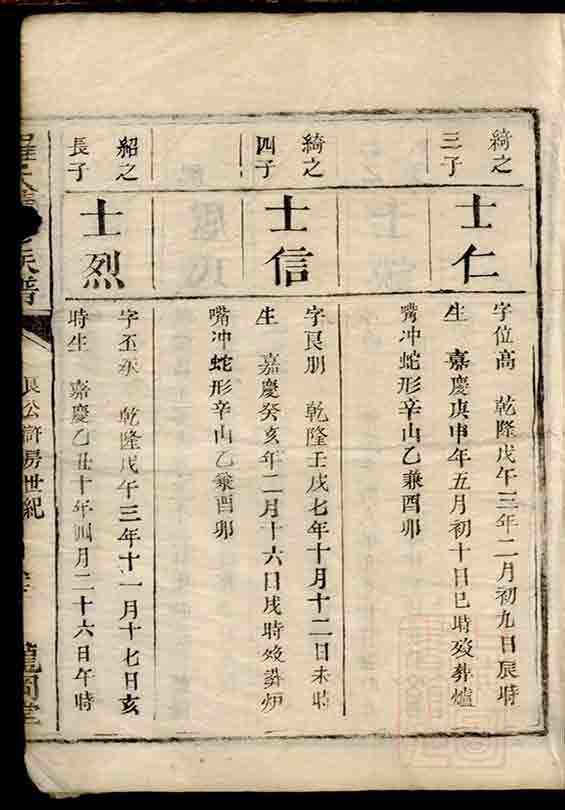 綺之
三子
士仁
字位高　乾隆戊午三年二月初九日辰時
生　嘉慶庚申年五月初十日巳時歿葬爐
嘴冲蛇形辛山乙兼酉卯
綺之
四子
士信
字良朋　乾隆壬戌七年十月十二日未時
生　嘉慶癸亥年二月十六日戌時歿葬炉
嘴冲蛇形辛山乙兼酉卯
紹之
長子
士烈
字丕承　乾隆戊午三年十一月十七日亥
時生　嘉慶乙丑十年四月二十六日午時
族譜
良公滸房世紀